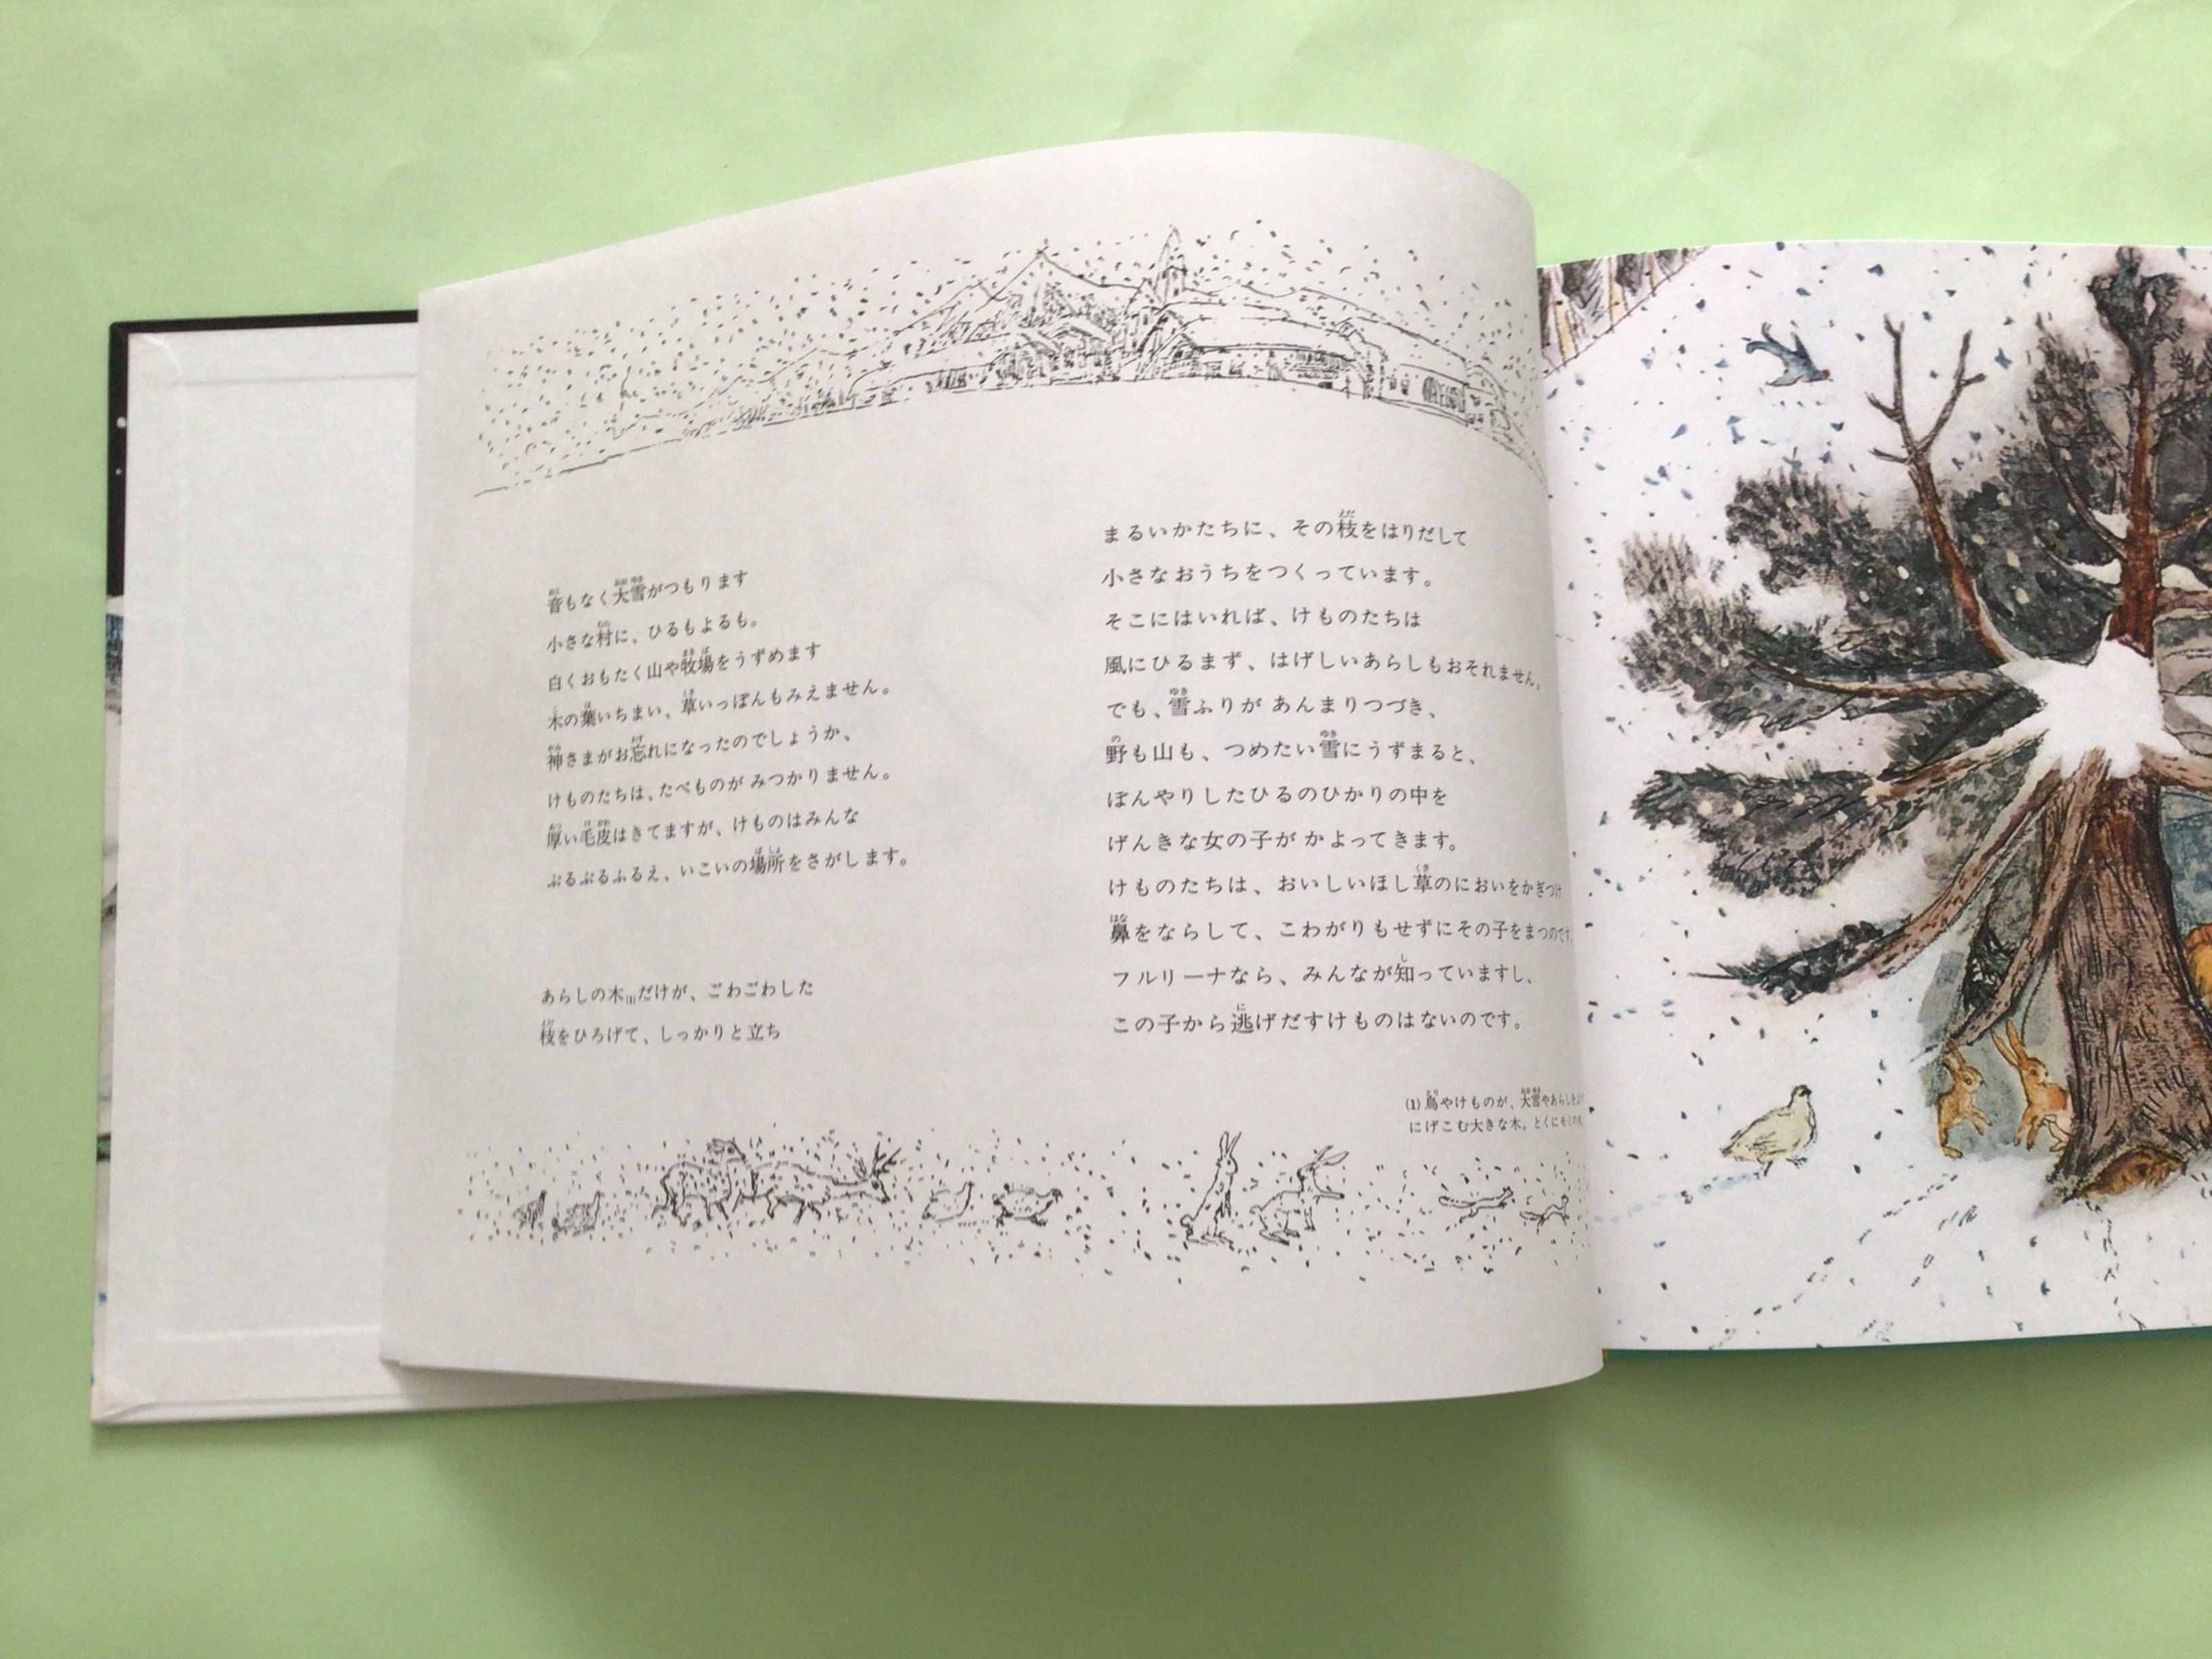 音もなく大雪がつもります
小さな村に、ひるもよるも。
白くおもたく山や牧場をうずめます
木の葉いちまい、草いっぽんもみえません。
神さまがお忘れになったのでしょうか、
けものたちは、たべものが みつかりません。
厚い毛皮はきてますが、けものはみんな
ぶるぶるふるえ、いこいの場所をさがします。
あらしの木(1)だけが、ごわごわした
枝をひろげて、しっかりと立ち
まるいかたちに、その枝をはりだして
小さなおうちをつくっています。
そこにはいれば、けものたちは
風にひるまず、はげしいあらしもおそれません。
でも、雪ふりが あんまりつづき、
野も山も、つめたい雪にうずまると、
ぼんやりしたひるのひかりの中を
げんきな女の子が かよってきます。
けものたちは、おいしいほし草のにおいをかぎつけ
鼻をならして、こわがりもせずにその子をまつのです
フルリーナなら、みんなが知っていますし、
この子から逃げだすけものはないのです。
(1) 鳥やけものが、大雪やあらしを
にげこむ大きな木。とくにその